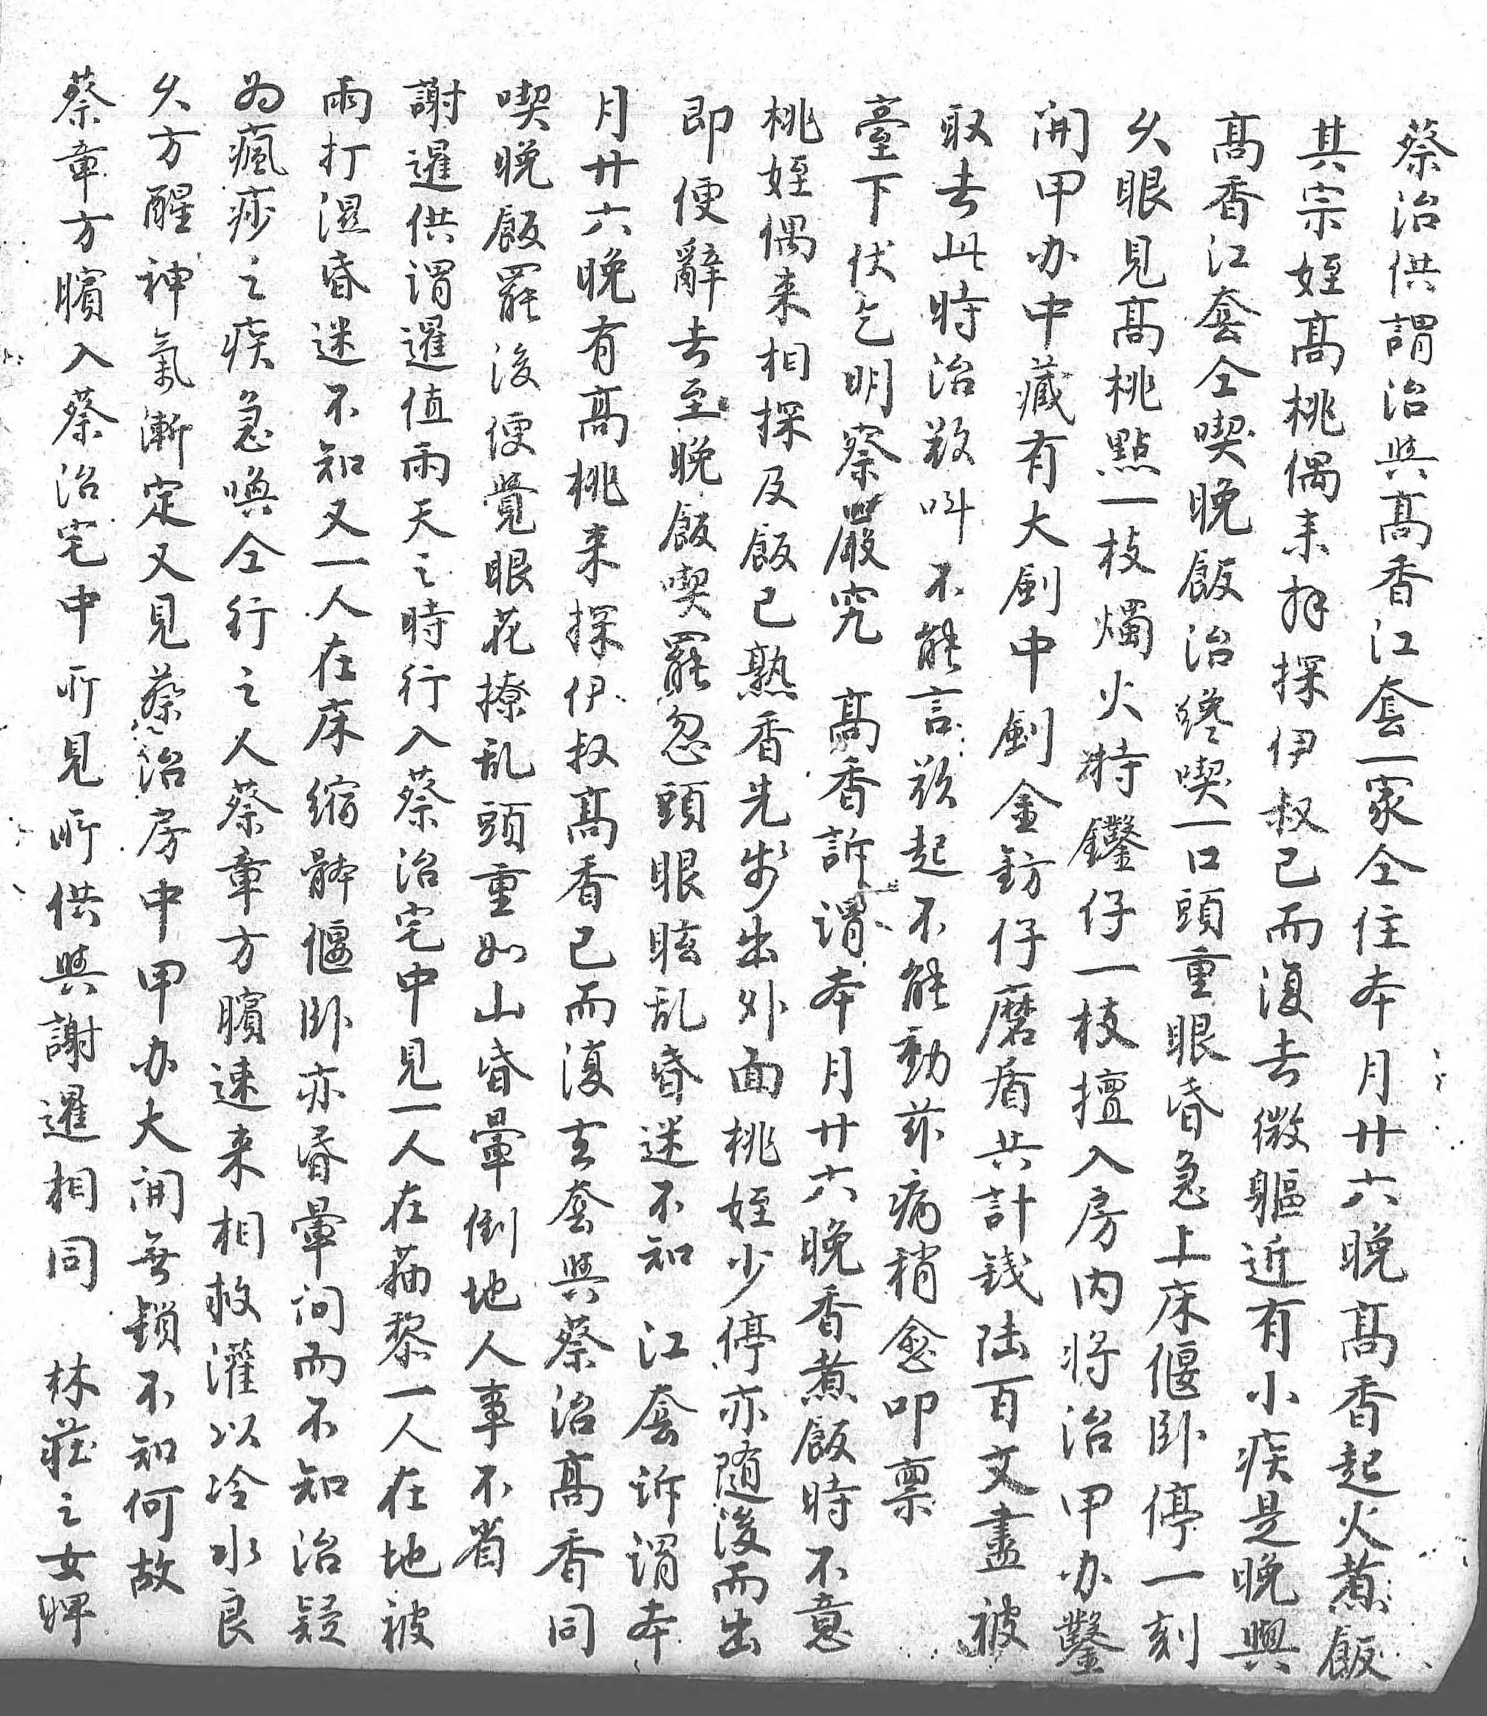 蔡治供謂治與高香江套一家仝住本月廿六晚高香起火煮飯
其宗姪高桃偶來探伊叔已而復去微軀近有小疾是晚與
高香江套仝喫晚飯治纔喫一口頭重眼昏急上床偃臥停一刻
久眼見高桃點一枝燭火持鑿仔一枝擅入房內將治甲办鑿
開甲办中藏有大劍中劍金鈁仔磨盾共計錢陸百文盡被
取去此時治欲叫不能言欲起不能動茲病稍愈叩稟
臺下伏乞明察嚴究　高香訴謂本月廿六晚香煮飯時不意
桃姪偶来相探及飯已熟香先步出外面桃姪少停亦随後而出
即便辭去至晚飯喫罷忽頭眼眩乱昏迷不知　江套訴謂本
月廿六晚有高桃来探伊叔高香已而復去套與蔡治高香同
喫晚飯罷後便覺眼花撩乱頭重如山昏暈倒地人事不省
謝暹供謂暹值雨天之時行入蔡治宅中見一人在藉黎一人在地被
雨打濕昏迷不知又一人在床縮體偃臥亦昏暈问而不知治疑
为瘋痧之疾急喚仝行之人蔡章方臏速来相救灌以冷水良
久方醒神氣漸定又見蔡治房中甲办大開無鎖不知何故
蔡章方臏入蔡治宅中所見所供與謝暹相同　林莊之女婢